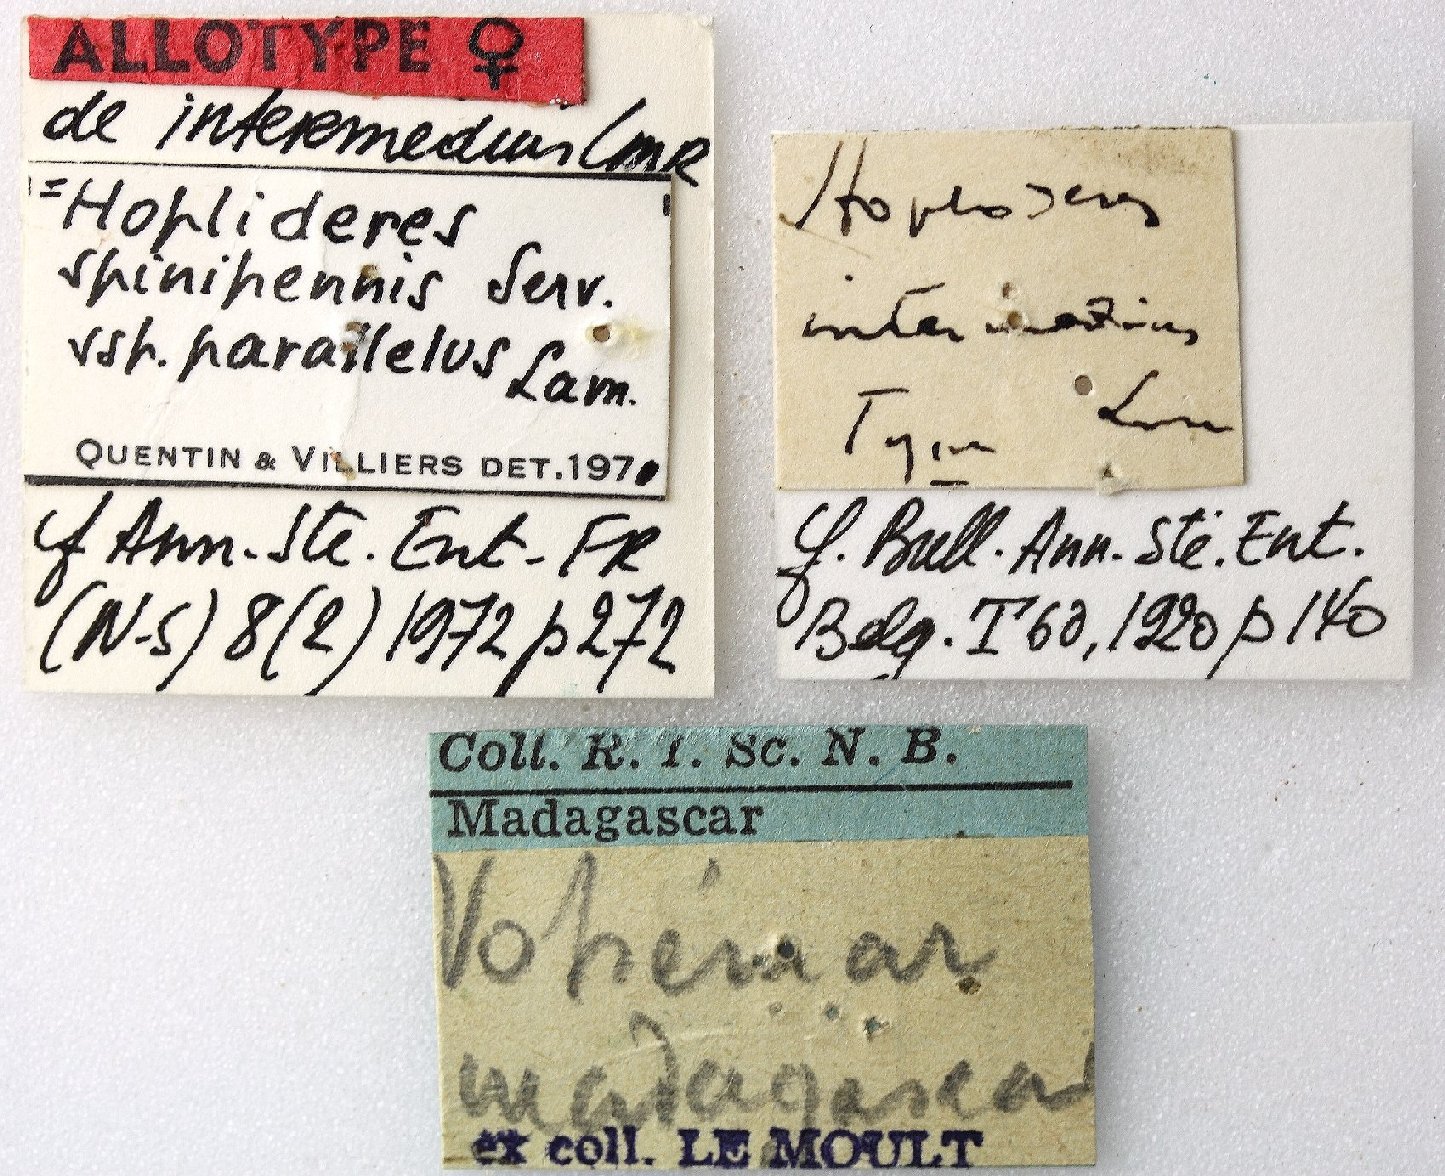 ALLOTYPE ♀
de intermedius LmR
=Hoplideres
spinipennis Serv.
ssp. parallelus Lam.
QUENTIN & VILLIERS DET.197
cf Ann. Ste. Ent. FR
(N-S) 8(2) 1972 p 272
Hoploderes
intermedius
Type
cf. Bull. Ann. Sté. Ent.
Belg. T 60, 1920 p 140
Coll. R. I. Sc. N. B.
Madagascar
Vohémar
madagascar
ex coll. LE MOULT